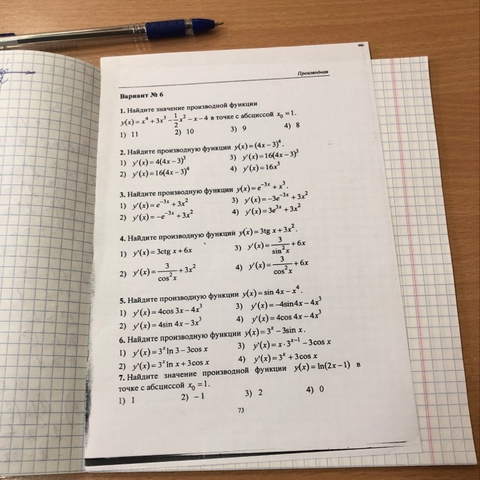 Производная
Вариант № 6
1. Найдите значение производной функции
y(x) = x⁴ + 3x³ − 1/2 x² − x − 4 в точке с абсциссой x₀ = 1.
1) 11 2) 10 3) 9 4) 8
2. Найдите производную функции y(x) = (4x − 3)⁴.
1) y'(x) = 4(4x − 3)³ 3) y'(x) = 16(4x − 3)³
2) y'(x) = 16(4x − 3)⁴ 4) y'(x) = 16x³
3. Найдите производную функции y(x) = e⁻³ˣ + x³.
1) y'(x) = e⁻³ˣ + 3x² 3) y'(x) = −3e⁻³ˣ + 3x²
2) y'(x) = −e⁻³ˣ + 3x² 4) y'(x) = 3e³ˣ + 3x²
4. Найдите производную функции y(x) = 3tg x + 3x².
1) y'(x) = 3ctg x + 6x 3) y'(x) = 3/sin² x + 6x
2) y'(x) = 3/cos² x + 3x² 4) y'(x) = 3/cos² x + 6x
5. Найдите производную функции y(x) = sin 4x − x⁴.
1) y'(x) = 4cos 3x − 4x³ 3) y'(x) = −4sin4x − 4x³
2) y'(x) = 4sin 4x − 3x³ 4) y'(x) = 4cos 4x − 4x³
6. Найдите производную функции y(x) = 3ˣ − 3sin x.
1) y'(x) = 3ˣ ln 3 − 3cos x 3) y'(x) = x · 3ˣ⁻¹ − 3cos x
2) y'(x) = 3ˣ ln x + 3cos x 4) y'(x) = 3ˣ + 3cos x
7. Найдите значение производной функции y(x) = ln(2x − 1) в
точке с абсциссой x₀ = 1.
1) 1 2) −1 3) 2 4) 0
73